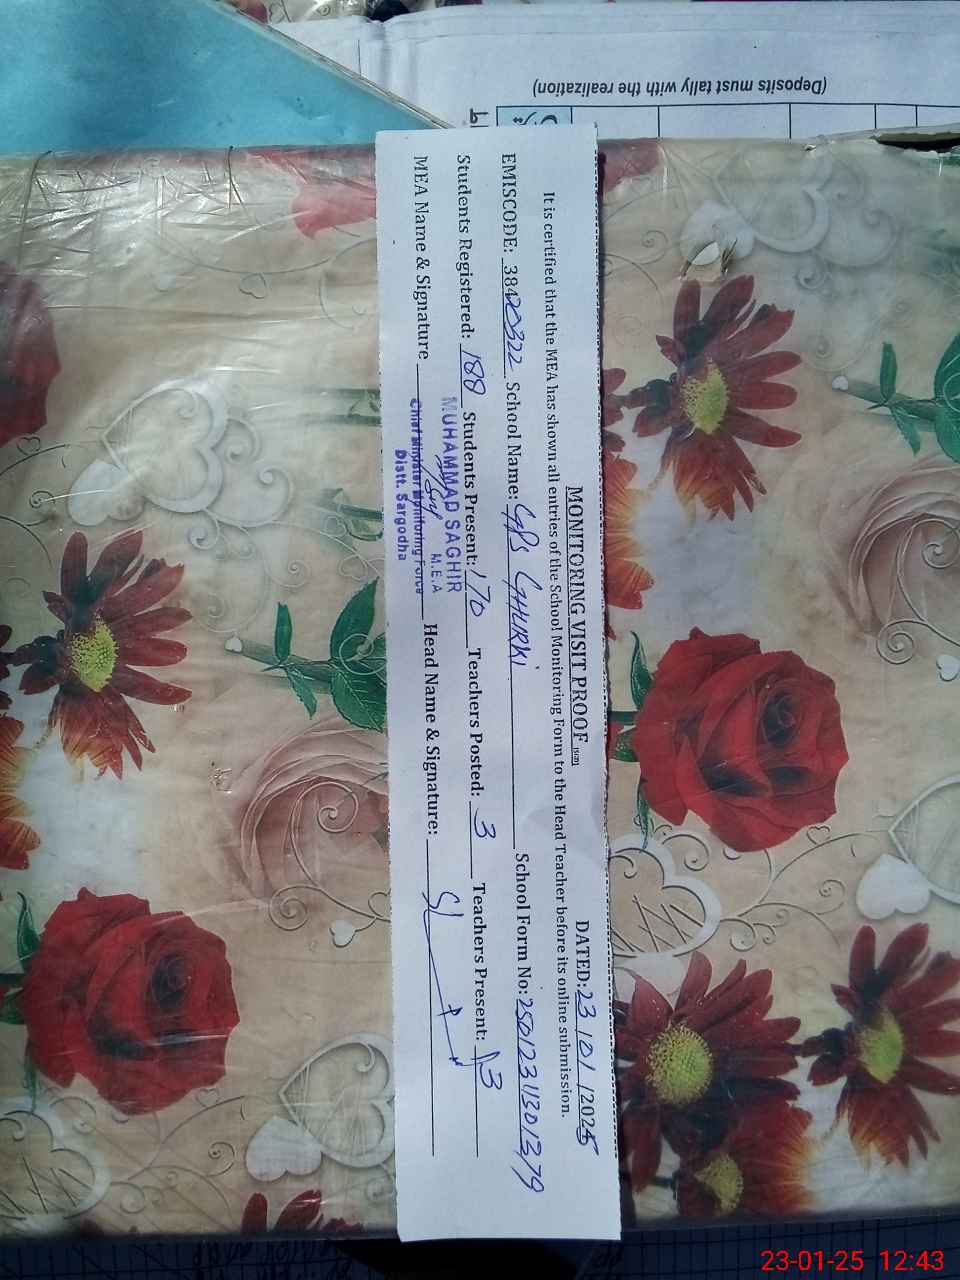 (Deposits must tally with the realization)
MONITORING VISIT PROOF
DATED: 23/01/2025
It is certified that the MEA has shown all entries of the School Monitoring Form to the Head Teacher before its online submission.
EMISCODE: 38400322 School Name: GPS GHURKI School Form No: 25012311301379
Students Registered: 188 Students Present: 170 Teachers Posted: 3 Teachers Present: 3
MEA Name & Signature Head Name & Signature:
MUHAMMAD SAGHIR
M.E.A
Chief Minister Monitoring Force
Distt. Sargodha
23-01-25 12:43